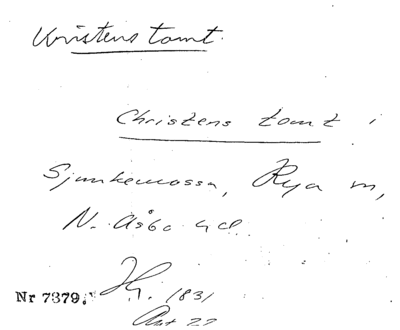 Kristens tomt.
Christens tomt i
Sjunkemossa, Rya sn,
N. Åsbo hd.
Nr 7379. 1831